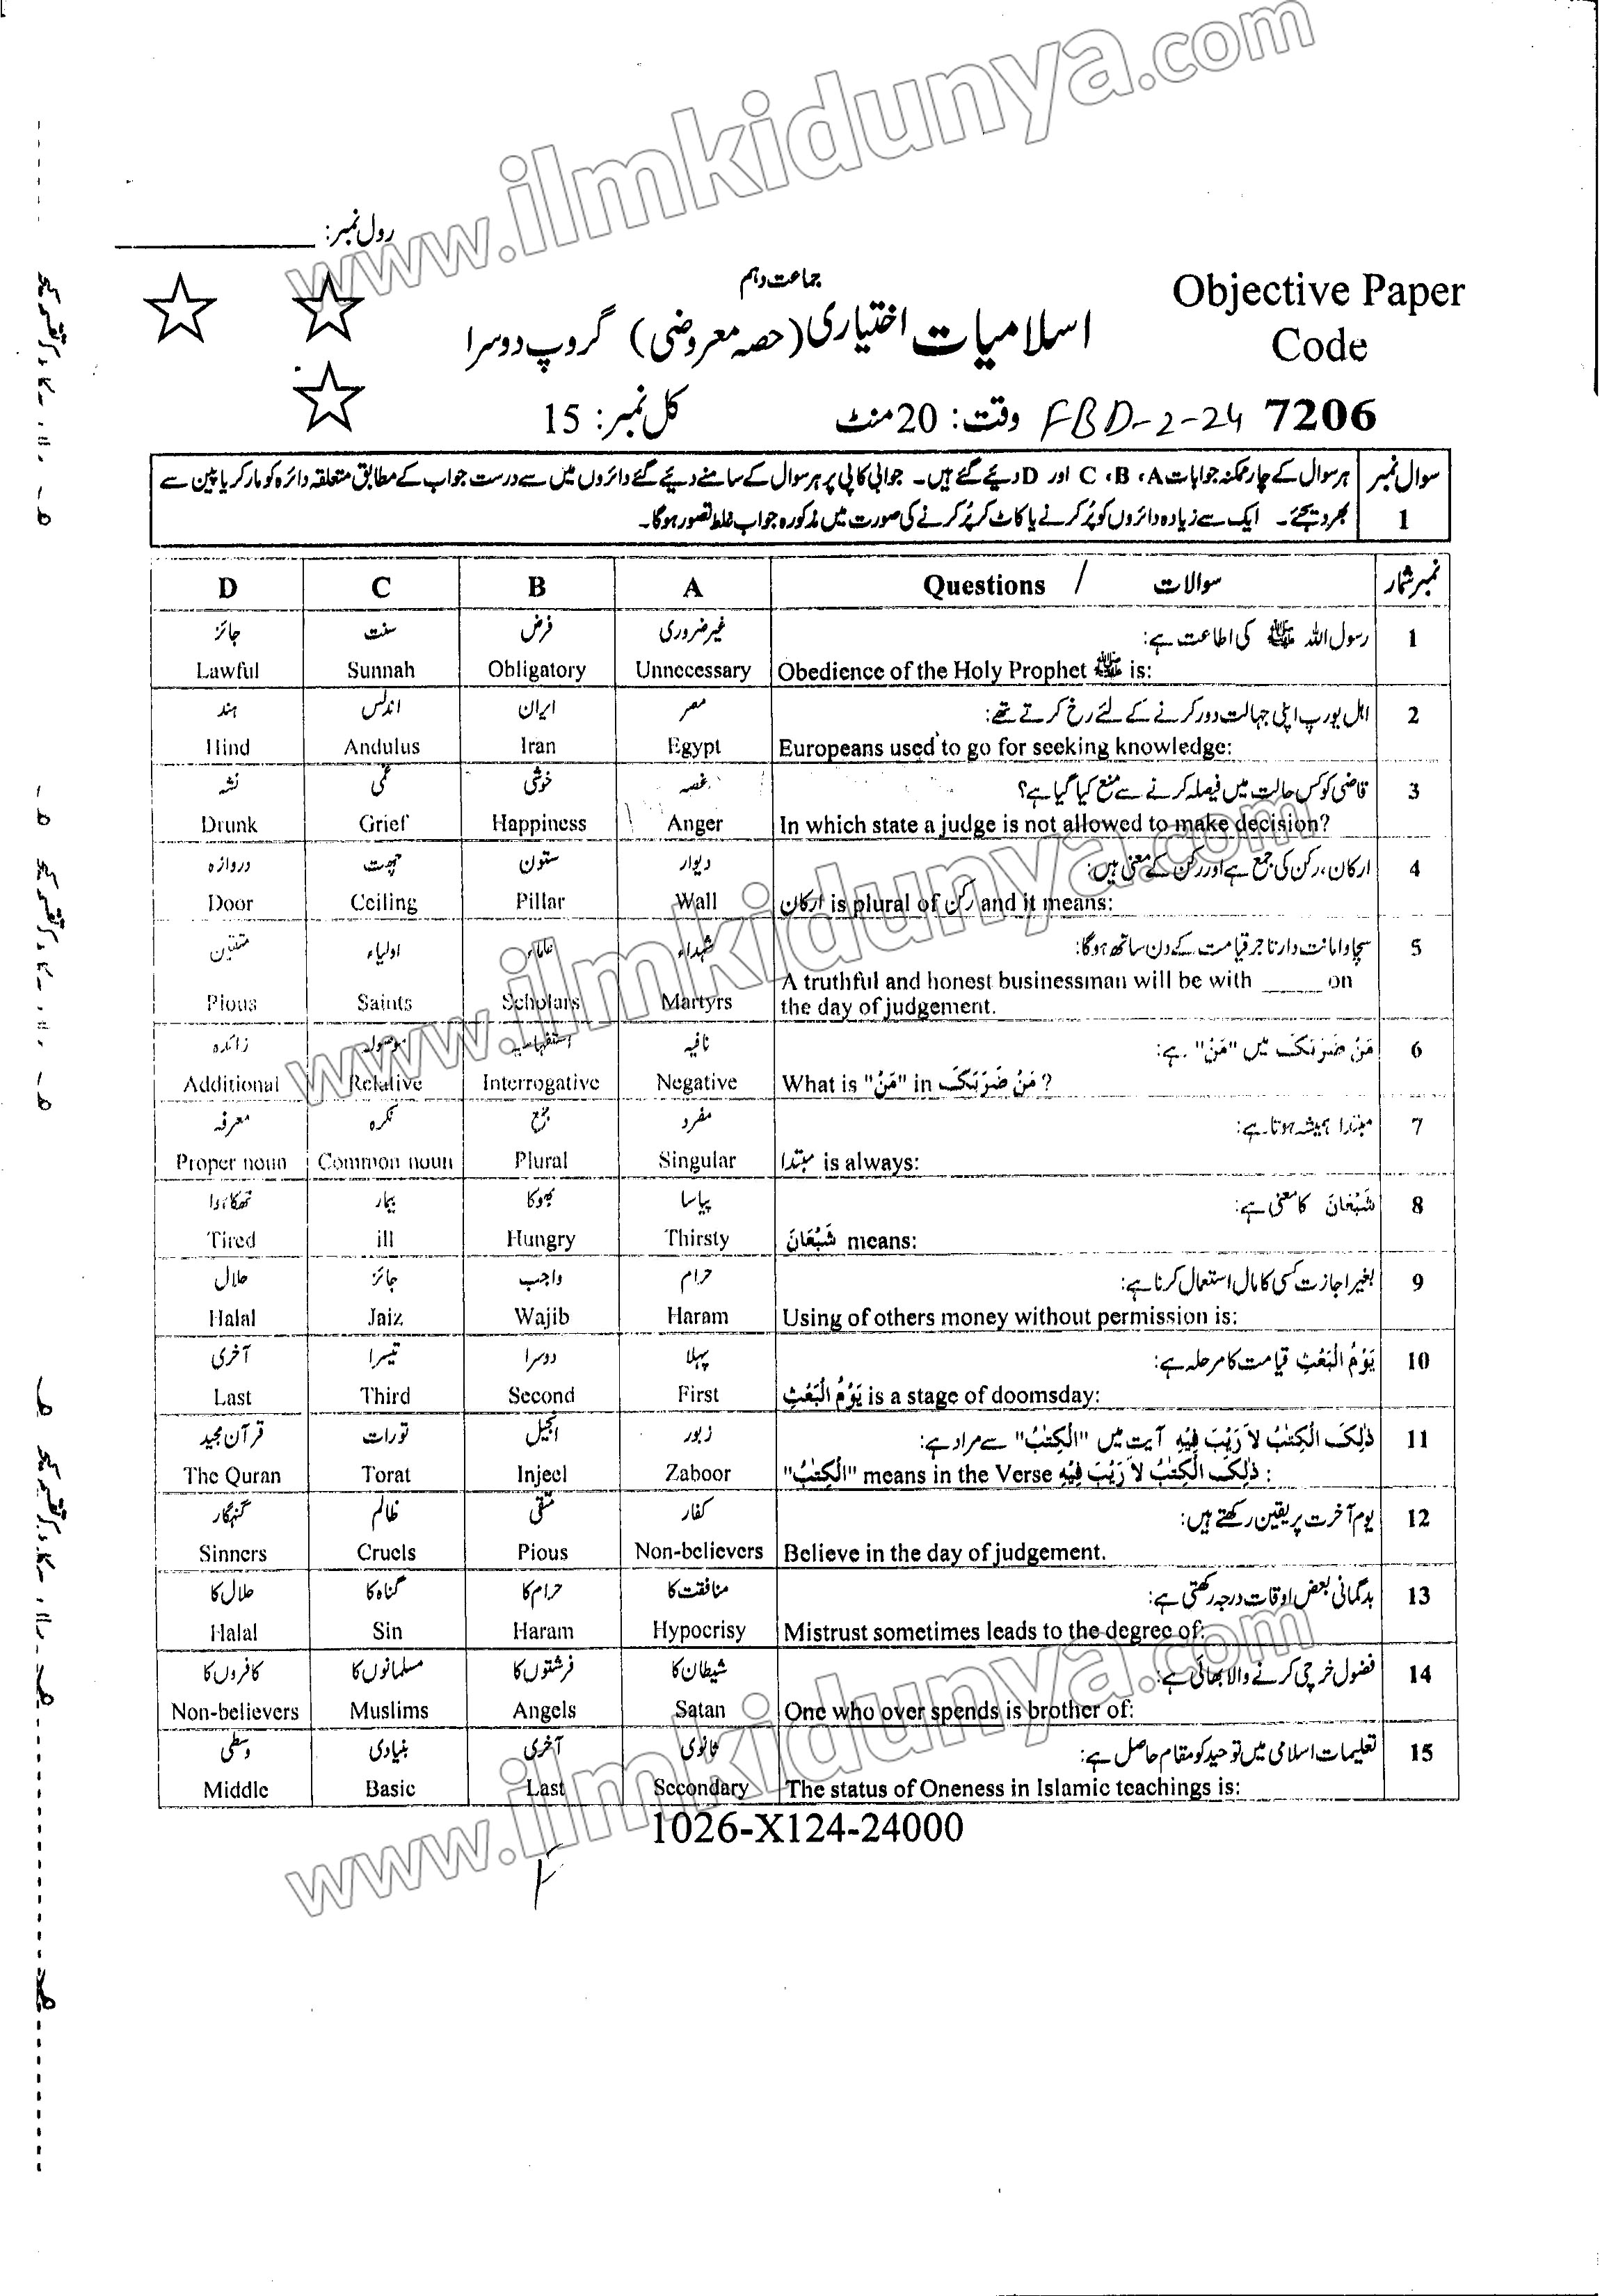 www.ilmkidunya.com
رول نمبر: ____________
جماعت دہم
اسلامیات اختیاری (حصہ معروضی) گروپ دوسرا
Objective Paper
Code
7206
FBD-2-24
وقت: 20 منٹ
کل نمبر: 15
سوال نمبر 1
ہر سوال کے چار ممکنہ جوابات A، B، C اور D دیئے گئے ہیں۔ جوابی کاپی پر ہر سوال کے سامنے دیئے گئے دائروں میں سے درست جواب کے مطابق متعلقہ دائرہ کو مارکر یا پین سے
بھر دیجئے۔ ایک سے زیادہ دائروں کو پُر کرنے یا کاٹ کر پُر کرنے کی صورت میں مذکورہ جواب غلط تصور ہوگا۔
نمبر شمار سوالات / Questions A B C D
1 رسول اللہ ﷺ کی اطاعت ہے: غیر ضروری فرض سنت جائز
Obedience of the Holy Prophet ﷺ is: Unnecessary Obligatory Sunnah Lawful
2 اہل یورپ اپنی جہالت دور کرنے کے لئے رخ کرتے تھے: مصر ایران اندلس ہند
Europeans used to go for seeking knowledge: Egypt Iran Andulus Hind
3 قاضی کو کس حالت میں فیصلہ کرنے سے منع کیا گیا ہے؟ غصہ خوشی غمی نشہ
In which state a judge is not allowed to make decision? Anger Happiness Grief Drunk
4 ارکان، رکن کی جمع ہے اور رکن کے معنی ہیں: دیوار ستون چھت دروازہ
ارکان is plural of رکن and it means: Wall Pillar Ceiling Door
5 سچا و امانت دار تاجر قیامت کے دن ساتھ ہوگا: شہداء علماء اولیاء متقین
A truthful and honest businessman will be with _____ on
the day of judgement. Martyrs Scholars Saints Pious
6 مَنْ ضَرَبَکَ میں "مَنْ" ہے: نافیہ استفہامیہ موصولہ زائدہ
What is "مَنْ" in مَنْ ضَرَبَکَ ? Negative Interrogative Relative Additional
7 مبتدا ہمیشہ ہوتا ہے: مفرد جمع نکرہ معرفہ
مبتدا is always: Singular Plural Common noun Proper noun
8 شَبْعَانَ کا معنی ہے: پیاسا بھوکا بیمار تھکا ہوا
شَبْعَانَ means: Thirsty Hungry ill Tired
9 بغیر اجازت کسی کا مال استعمال کرنا ہے: حرام واجب جائز حلال
Using of others money without permission is: Haram Wajib Jaiz Halal
10 یَوْمُ الْبَعْثِ قیامت کا مرحلہ ہے: پہلا دوسرا تیسرا آخری
یَوْمُ الْبَعْثِ is a stage of doomsday: First Second Third Last
11 ذٰلِکَ الْکِتٰبُ لاَ رَیْبَ فِیْهِ آیت میں "الْکِتٰبُ" سے مراد ہے: زبور انجیل تورات قرآن مجید
"الْکِتٰبُ" means in the Verse ذٰلِکَ الْکِتٰبُ لاَ رَیْبَ فِیْهِ : Zaboor Injeel Torat The Quran
12 یوم آخرت پر یقین رکھتے ہیں: کفار متقی ظالم گنہگار
Believe in the day of judgement. Non-believers Pious Cruels Sinners
13 بدگمانی بعض اوقات درجہ رکھتی ہے: منافقت کا حرام کا گناہ کا حلال کا
Mistrust sometimes leads to the degree of: Hypocrisy Haram Sin Halal
14 فضول خرچی کرنے والا بھائی ہے: شیطان کا فرشتوں کا مسلمانوں کا کافروں کا
One who over spends is brother of: Satan Angels Muslims Non-believers
15 تعلیمات اسلامی میں توحید کو مقام حاصل ہے: ثانوی آخری بنیادی وسطی
The status of Oneness in Islamic teachings is: Secondary Last Basic Middle
1026-X124-24000
www.ilmkidunya.com
www.ilmkidunya.com